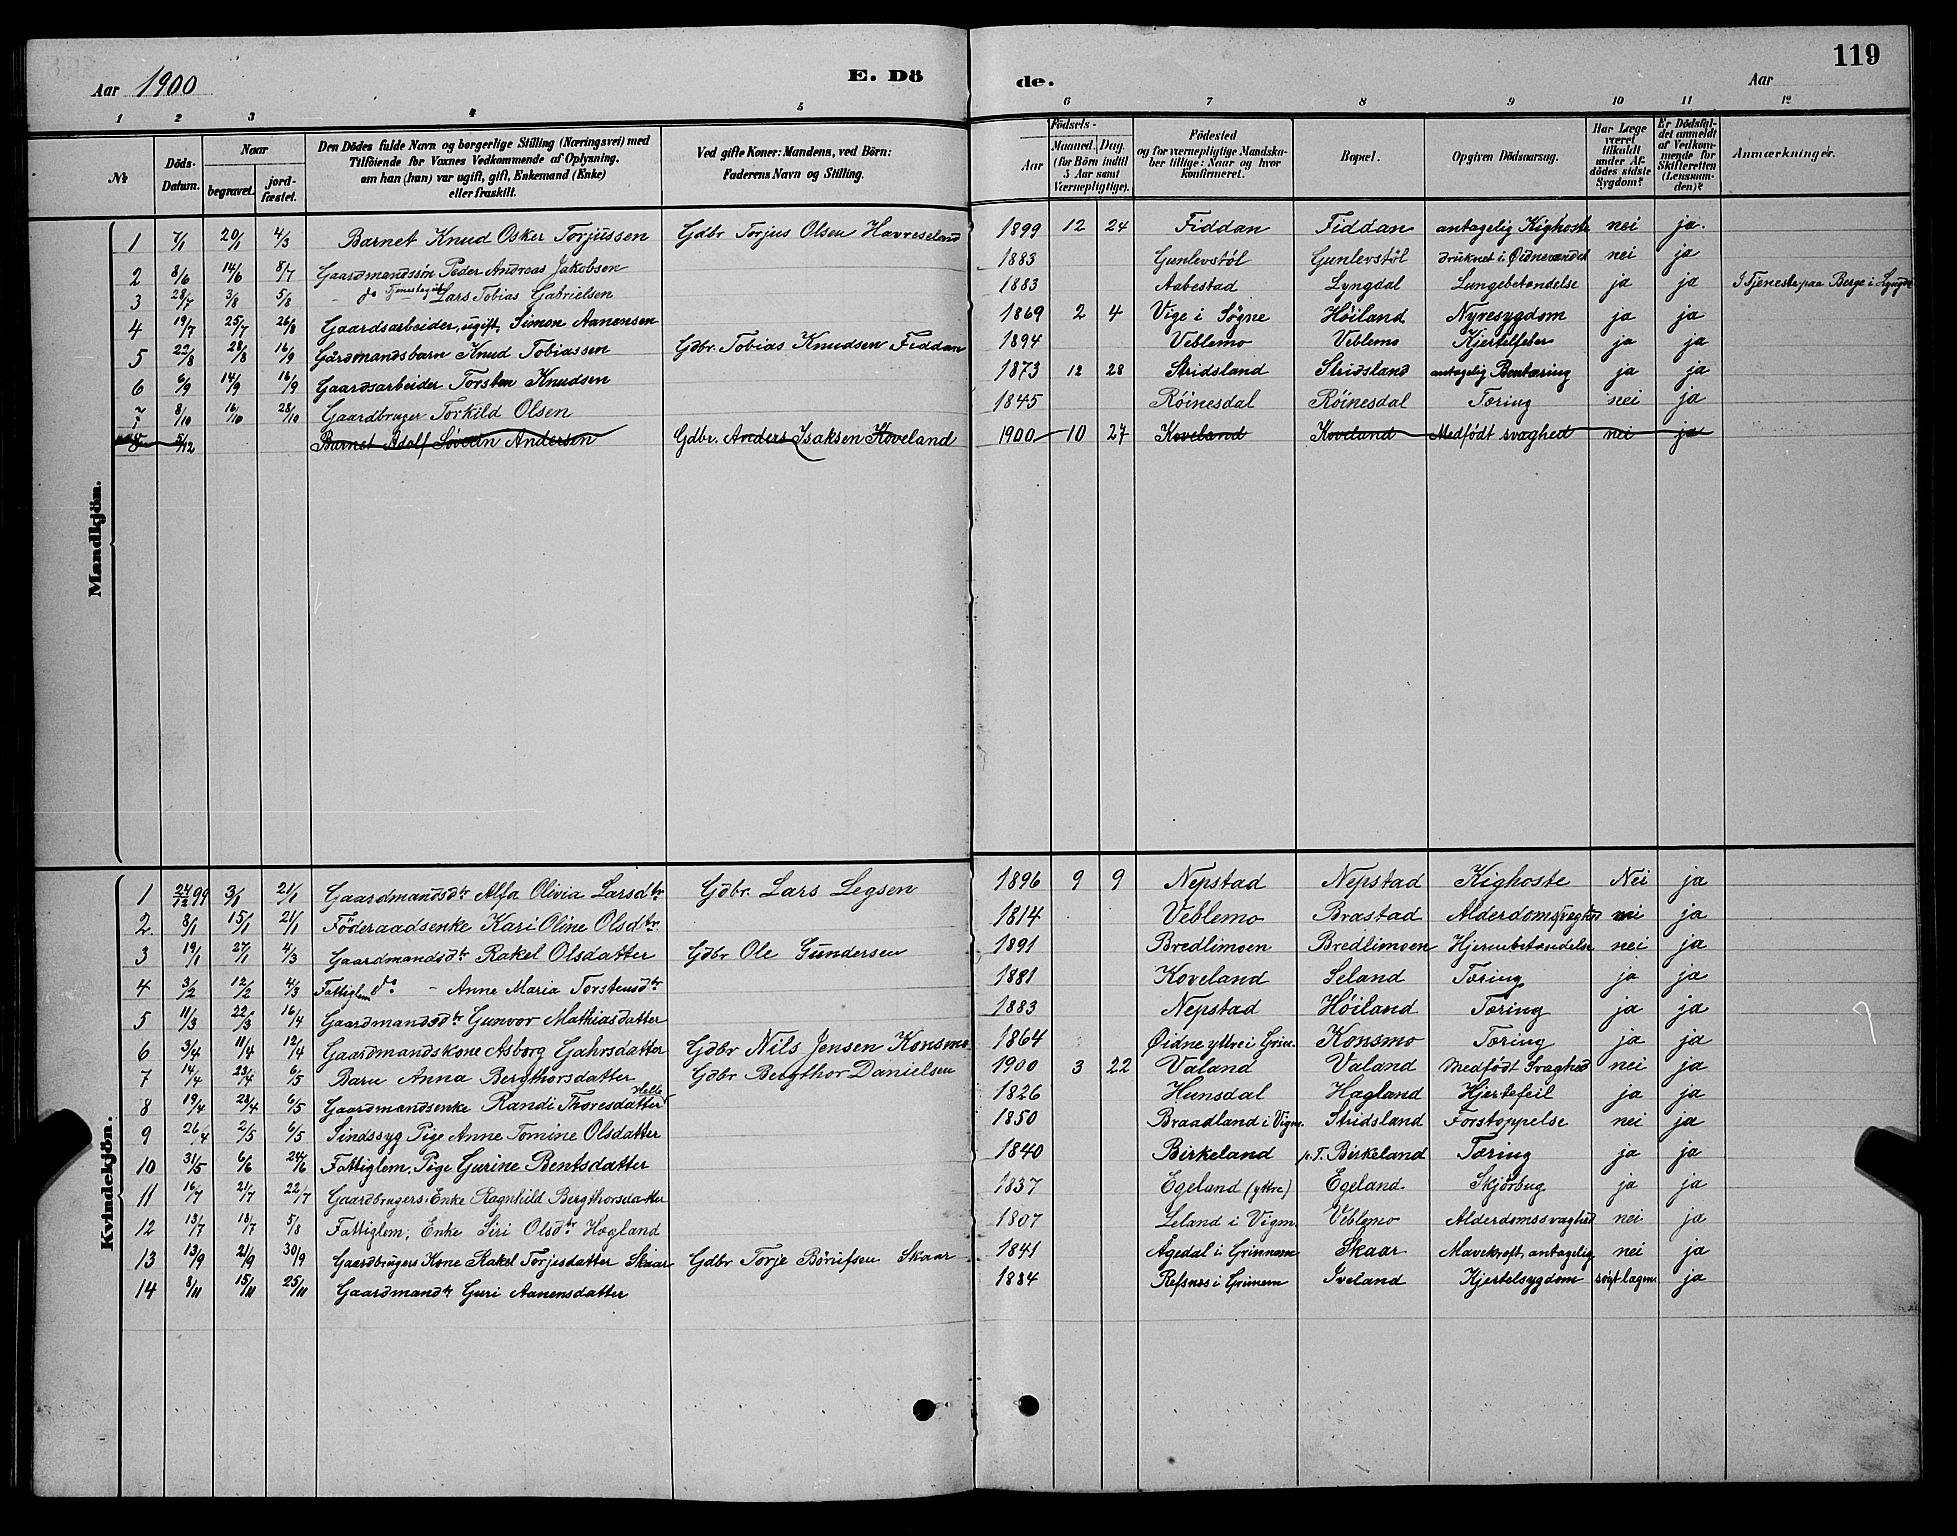 Aar 1900 E. Dö de. Aar 119
1 2 3 4 5 6 7 8 9 10 11 12
№ Döds-Datum. Naar begravet. jordfæstet. Den Dödes fulde Navn og borgerlige Stilling (Næringsvei) med Tilföiende for Voxnes Vedkommende af Oplysning, om han (hun) var ugift, gift, Enkemand (Enke) eller fraskilt. Ved gifte Koner: Mandens, ved Börn: Faderens Navn og Stilling. Födsels- Aar Maaned. Dag. (for Börn indtil 5 Aar samt Værnepligtige). Födested og for værnepligtige Mandskaber tillige: Naar og hvor konfirmeret. Bopæl. Opgiven Dödsaarsag. Har Læge været tilkaldt under Afdödes sidste Sygdom? Er Dödsfaldet anmeldt af Vedkommende for Skifteretten (Lensmanden)? Anmærkninger.
Mandkjön.
1 7/1 20/1 4/3 Barnet Knud Osker Torjussen Gdbr Torjus Olsen Havreseland 1899 12 24 Fiddan Fiddan antagelig Kighoste nei ja.
2 8/6 14/6 8/7 Gaardmandssön Peder Andreas Jakobsen 1883 Gunlevstöl Gunlevstöl druknet i Øidnevandet nei ja
3 28/7 3/8 5/8 - do Tjenestegut Lars Tobias Gabrielsen 1883 Aabestad Lyngdal Lungebetændelse ja ja I Tjeneste paa Berge i Lyngd
4 19/7 25/7 26/8 Gaardsarbeider, ugift, Simon Aanensen 1869 2 4 Vige i Søgne Høiland Nyresygdom ja ja
5 22/8 28/8 16/9 Gardmandsbarn Knud Tobiassen Gdbr. Tobias Knudsen Fiddan 1894 Veblemo Veblemo Kjertelfeber ja ja
6 6/9 14/9 16/9 Gaardsarbeider Torsten Knudsen 1873 12 28 Stridsland Stridsland antagelig Bentæring ja ja
7 8/10 16/10 28/10 Gaardbruger Torkild Olsen 1845 Röinesdal Röinesdal Tæring nei ja
8 5/12 Barnet Adolf Søverin Andersen Gdbr. Anders Isaksen Koveland 1900 10 27 Koveland Koveland Medfödt svaghed nei ja
Kvindekjön.
1 24/12 99 3/1 21/1 Gaardmandsdtr Alfa Olivia Larsdtr Gdbr. Lars Legsen 1896 9 9 Nepstad Nepstad Kighoste Nei ja
2. 8/1 15/1 21/1 Föderaadsenke Kari Oline Olsdtr. 1814 Veblemo Brastad Alderdomssvaghed nei ja
3 19/1 27/1 4/3 Gaardmandsdtr Rakel Olsdatter Gdbr Ole Gundersen 1891 Bredlimoen Bredlimoen Hjernebetændelse nei ja
4 3/2 12/2 4/3 Fattiglem do - Anne Maria Torstensdtr 1881 Koveland Seland Tæring ja ja
5 11/3 22/3 16/4 Gaardmandsdtr Gunvor Mathiasdatter 1883 Nepstad Høiland Tæring ja ja
6 3/4 11/4 12/4 Gaardmandskone Asborg Gahrsdatter Gdbr Nils Jensen Konsmo 1864 Øidne yttre i Grin. Konsmo Tæring ja ja
7 14/4 23/4 6/5 Barn Anna Bergthorsdatter Gdbr Bergthor Danielsen 1900 3 22 Valand Valand Medfödt Svaghed nei ja
8 19/4 28/4 6/5 Gaardmandsenke Randi Thoresdatter Helle 1826 Hunsdal Hagland Hjertefeil ja ja
9 26/4 2/5 6/5 Sindssyg Pige Anne Tomine Olsdatter 1850 Braadland i Vigm. Stridsland Forstoppelse nei ja
10 31/5 6/6 24/6 Fattiglem, Pige Gurine Bentsdatter 1840 Birkeland p.T. Birkeland Tæring ja ja
11 16/7 21/7 22/7 Gaardbrugers Enke Ragnhild Bergthorsdatter 1837 Egeland (yttre) Egeland Skjörbug ja ja
12 13/7 18/7 5/8 Fattiglem, Enke Siri Olsdtr Hogland 1807 Leland i Vigm. Veblemo Alderdomssvaghed nei ja
13 13/9 21/9 30/9 Gaardbrugers Kone Rakel Torjesdatter Skaar Gdbr Torje Börufsen Skaar 1841 Agedal i Grinnem Skaar Mavekræft, antagelig nei ja
14 8/11 15/11 25/11 Gaardmandtr Guri Aanensdatter 1884 Refsnes i Grimem Iveland Kjertelsygdom søgt lægen ja